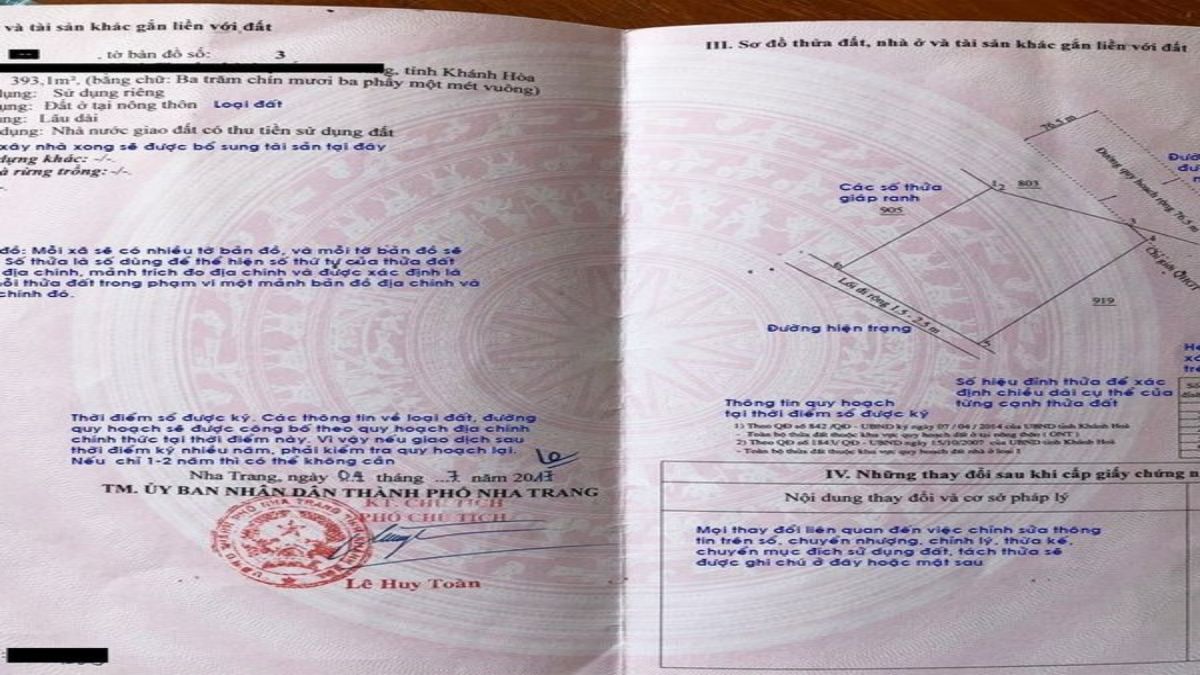 và tài sản khác gắn liền với đất
, tờ bản đồ số: 3
g, tỉnh Khánh Hòa
393,1m², (bằng chữ: Ba trăm chín mươi ba phẩy một mét vuông)
dụng: Sử dụng riêng
ụng: Đất ở tại nông thôn Loại đất
ng: Lâu dài
dụng: Nhà nước giao đất có thu tiền sử dụng đất
xây nhà xong sẽ được bổ sung tài sản tại đây
dựng khác: -/-.
à rừng trồng: -/-.
đồ: Mỗi xã sẽ có nhiều tờ bản đồ, và mỗi tờ bản đồ sẽ
Số thửa là số dùng để thể hiện số thứ tự của thửa đất
địa chính, mảnh trích đo địa chính và được xác định là
ỗi thửa đất trong phạm vi một mảnh bản đồ địa chính và
chính đó.
Thời điểm sổ được ký. Các thông tin về loại đất, đường
quy hoạch sẽ được công bố theo quy hoạch địa chính
chính thức tại thời điểm này. Vì vậy nếu giao dịch sau
thời điểm ký nhiều năm, phải kiểm tra quy hoạch lại.
Nếu chỉ 1-2 năm thì có thể không cần
Nha Trang, ngày 04 tháng ...7 năm 2017
TM. ỦY BAN NHÂN DÂN THÀNH PHỐ NHA TRANG
KT. CHỦ TỊCH
PHÓ CHỦ TỊCH
Lê Huy Toàn
III. Sơ đồ thửa đất, nhà ở và tài sản khác gắn liền với đất
76.5 m
Đường quy hoạch rộng 76.5 m
Đườ
đư
Các số thửa
giáp ranh
905
1
2
803
3
Chỉ giới QHGT
919
6
Lối đi rộng 1.5 - 2.5 m
5
Đường hiện trạng
Số hiệu đỉnh thửa để xác
định chiều dài cụ thể của
từng cạnh thửa đất
Thông tin quy hoạch
tại thời điểm sổ được ký
1) Theo QĐ số 842 /QĐ - UBND ký ngày 07 / 04 / 2014 của UBND tỉnh Khánh Hoà
- Toàn bộ thửa đất thuộc khu vực quy hoạch đất ở tại nông thôn ( ONT )
2) Theo QĐ số 1843/ QĐ - UBND ký ngày 15/10/2007 của UBND tỉnh Khánh Hoà
- Toàn bộ thửa đất thuộc khu vực quy hoạch đất nhà ở loại 1
IV. Những thay đổi sau khi cấp giấy chứng n
Nội dung thay đổi và cơ sở pháp lý
Mọi thay đổi liên quan đến việc chỉnh sửa thông
tin trên sổ, chuyển nhượng, chỉnh lý, thừa kế,
chuyển mục đích sử dụng đất, tách thửa sẽ
được ghi chú ở đây hoặc mặt sau